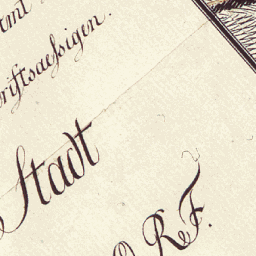 amt
schriftsaessigen.
Stadt
O. R. F.